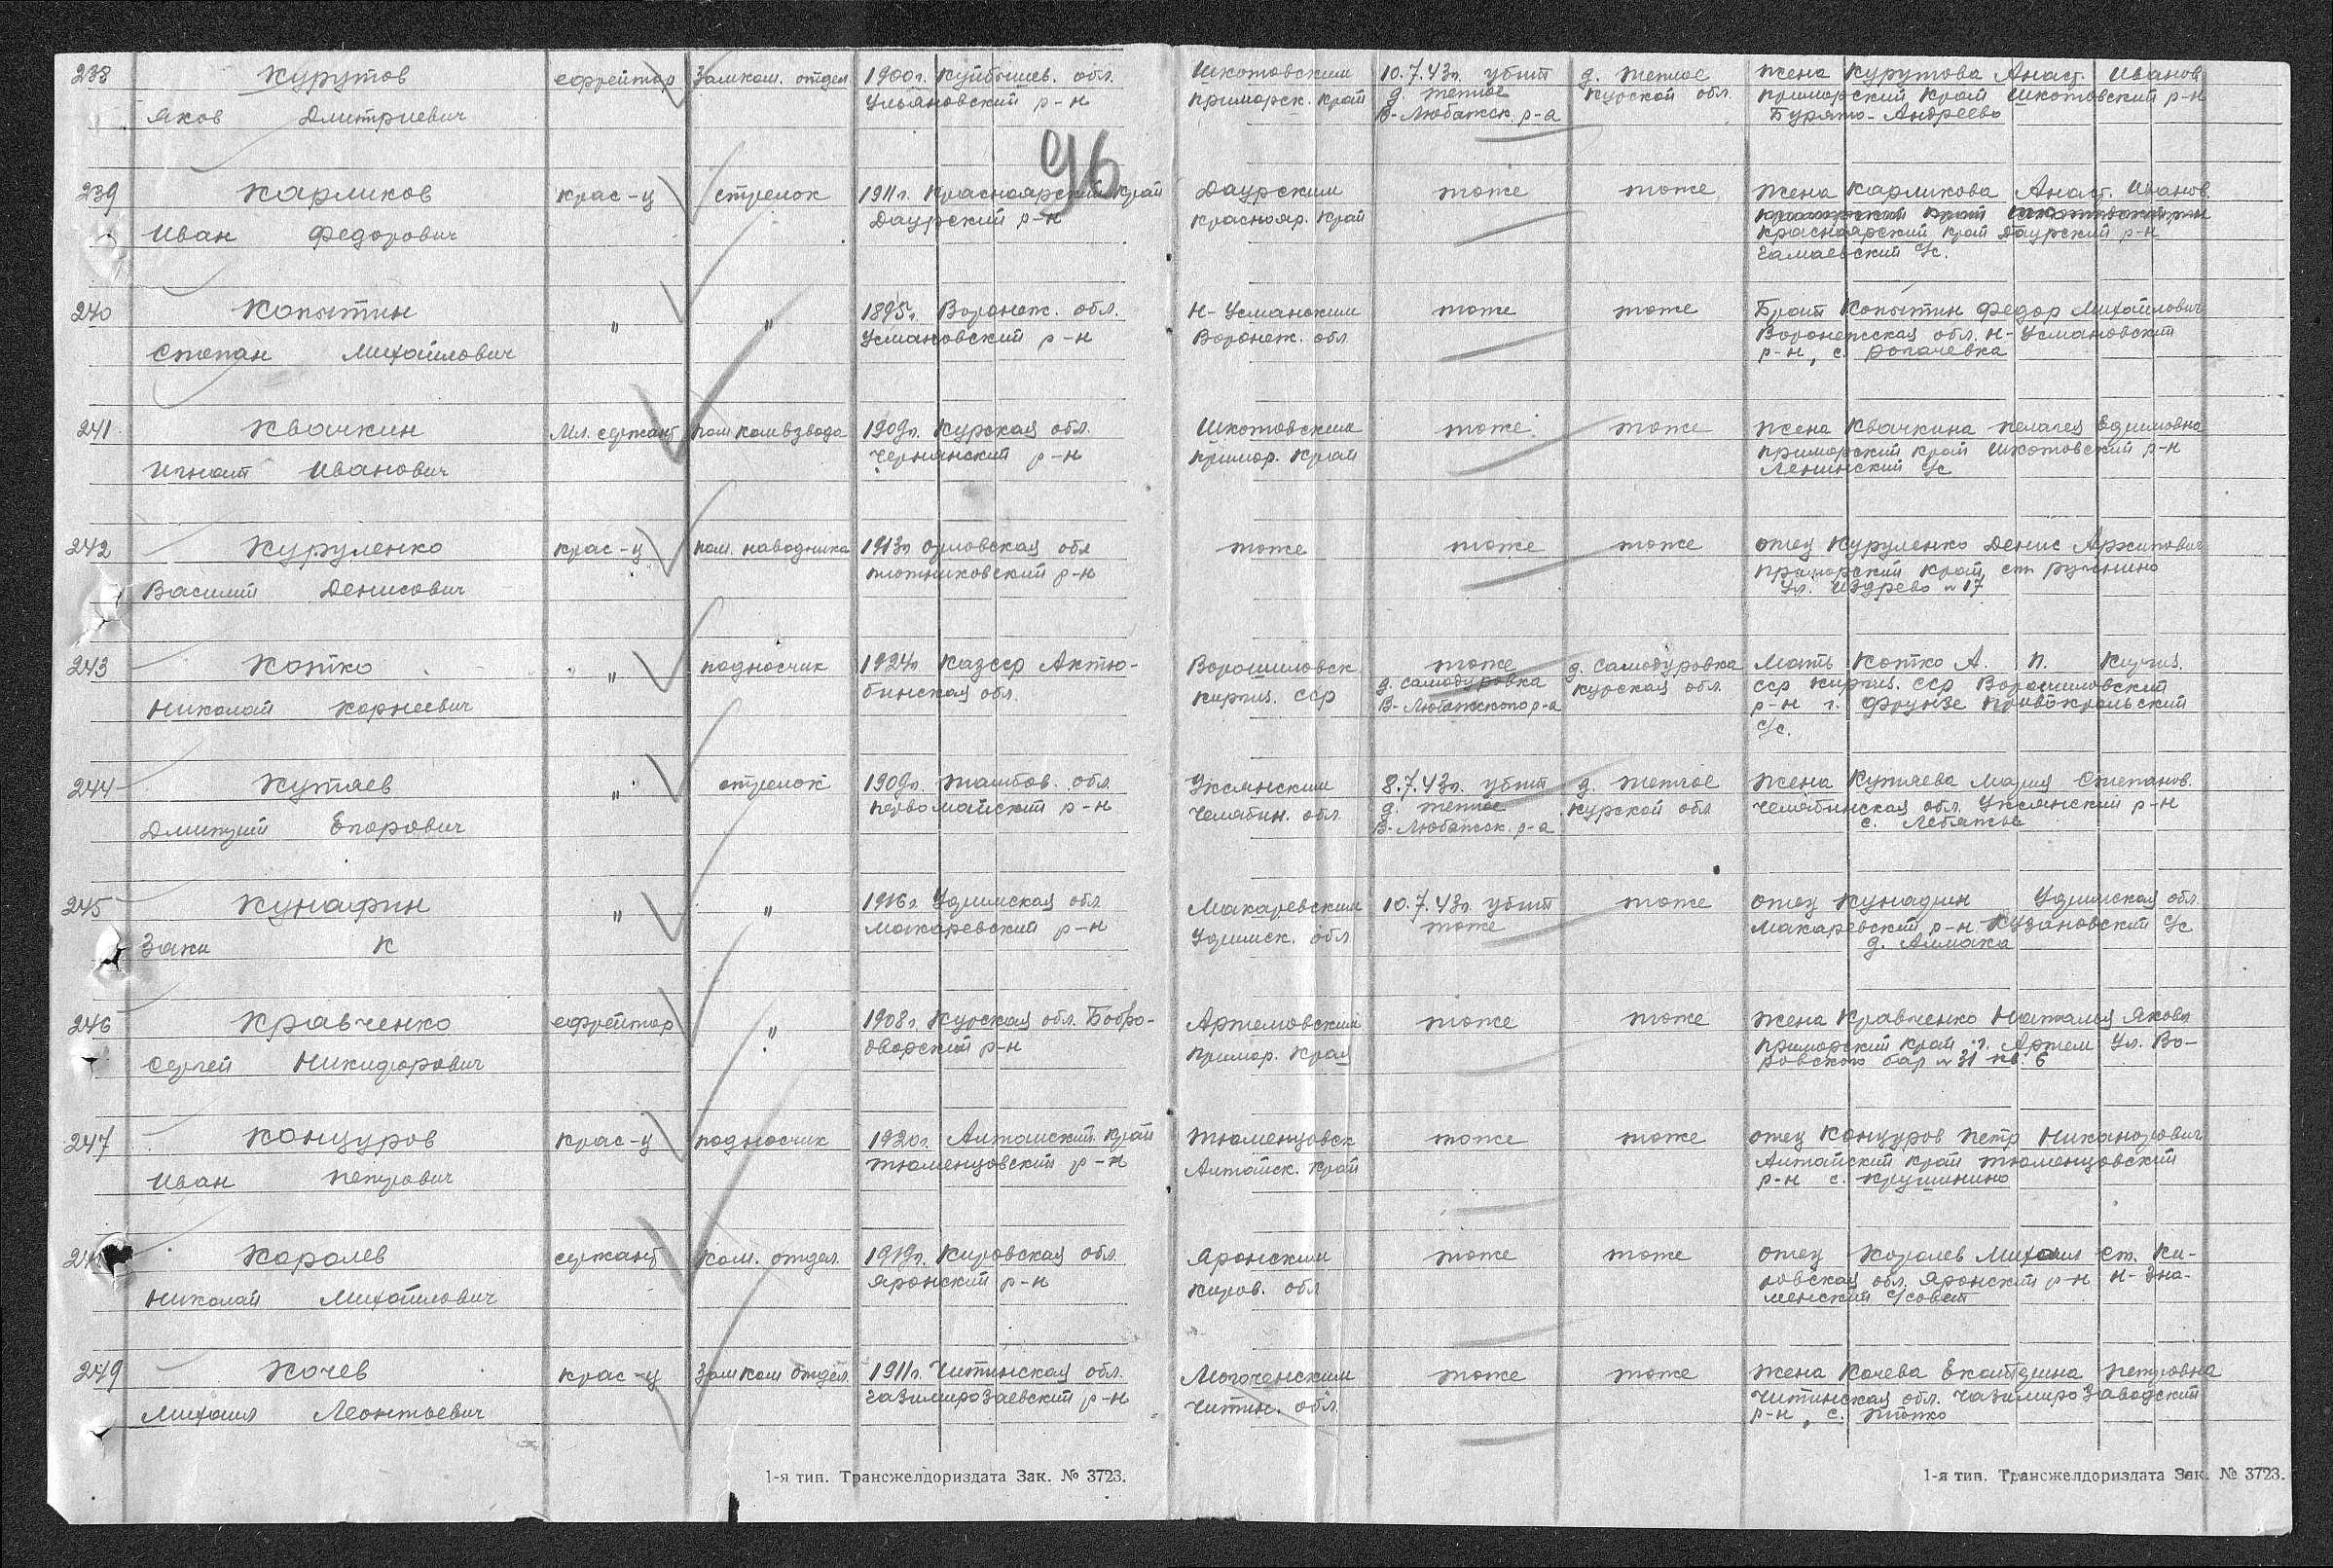 96
238 Курутов ефрейтор Замком. отдел 1900г. Куйбышев. обл. Шкотовским 10.7.43г. убит д. теплое жена Курутова Анаст. Иванов
Яков Дмитриевич Ульяновский р-н приморск. край д. теплое Курской обл. приморский край Шкотовский р-н
В-Любажск. р-а Бурято-Андреево
239 Карликов крас-ц стрелок 1911г. Красноярский край Даурским тоже тоже жена Карликова Анаст. Иванов.
Иван Федорович Даурский р-н краснояр. край
красноярский край Даурский р-н
с/с.
240 Копытин " " 1895г. Воронеж. обл. Н-Усманским тоже тоже Брат Копытин Федор Михайлович
Степан Михайлович Усмановский р-н Воронеж. обл Воронежская обл. Н-Усмановский
р-н, с. Рогачевка
241 Квачкин Мл. сержант пом комвзвода 1909г. Курская обл. Шкотовским тоже тоже жена Квачкина пелагея
Игнат Иванович Чернянский р-н примор. край приморский край Шкотовский р-н
Ленинский с/с
242 Куруленко крас-ц пом. наводчика 1913г орловская обл тоже тоже тоже отец Куруленко Денис Архипович
Василий Денисович р-н приморский край, ст
ул. № 17
243 Котко " подносчик 1924г. Казсср Актю- Ворошиловск тоже д. самодуровка Мать Котко А. П. Киргиз.
Николай Корнеевич бинская обл. киргиз. сср д. самодуровка курская обл. сср киргиз. сср Ворошиловский
В-Любажского р-а р-н г. Фрунзе
с/с.
244 Кутяев " стрелок 1909г. тамбов. обл. Уксянским 8.7.43г. убит д. теплое жена Кутяева Мария Степанов.
Дмитрий Егорович первомайский р-н челябин. обл д. теплое курской обл челябинская обл. Уксянский р-н
В-Любажск. р-а с.
245 Кунафин " " 1916г. Уфимская обл Макаревским 10.7.43г. убит тоже отец Кунафин Уфимская обл.
Заки К макаревский р-н Уфимск. обл тоже макаревский р-н с/с
д.
246 Кравченко ефрейтор " 1908г. Курская обл. Бобро- Артемовский тоже тоже жена Кравченко Наталия Яковл
Сергей Никифорович дворский р-н примор. края приморский край г. Артем ул. Во-
ровского бар № 31 кв. 6
247 Концуров крас-ц подносчик 1920г. Алтайский край тюменцовск тоже тоже отец Концуров петр Никанорович
Иван петрович тюменцовский р-н Алтайск. край Алтайский край тюменцовский
р-н с. крушинино
Королев сержант ком. отдел. 1919г. Кировская обл. Яронским тоже тоже отец Королев Михаил Ст. Ки-
Николай Михайлович Яронский р-н киров. обл ровская обл. Яронский р-н Н-Зна-
менский с/совет
249 Кочев крас-ц Замком отдел. 1911г. Читинская обл. Могоченским тоже тоже жена Кочева Екатерина петровна
Михаил Леонтьевич р-н Читин. обл. Читинская обл.
р-н, с.
1-я тип. Трансжелдориздата Зак. № 3723. 1-я тип. Трансжелдориздата Зак. № 3723.